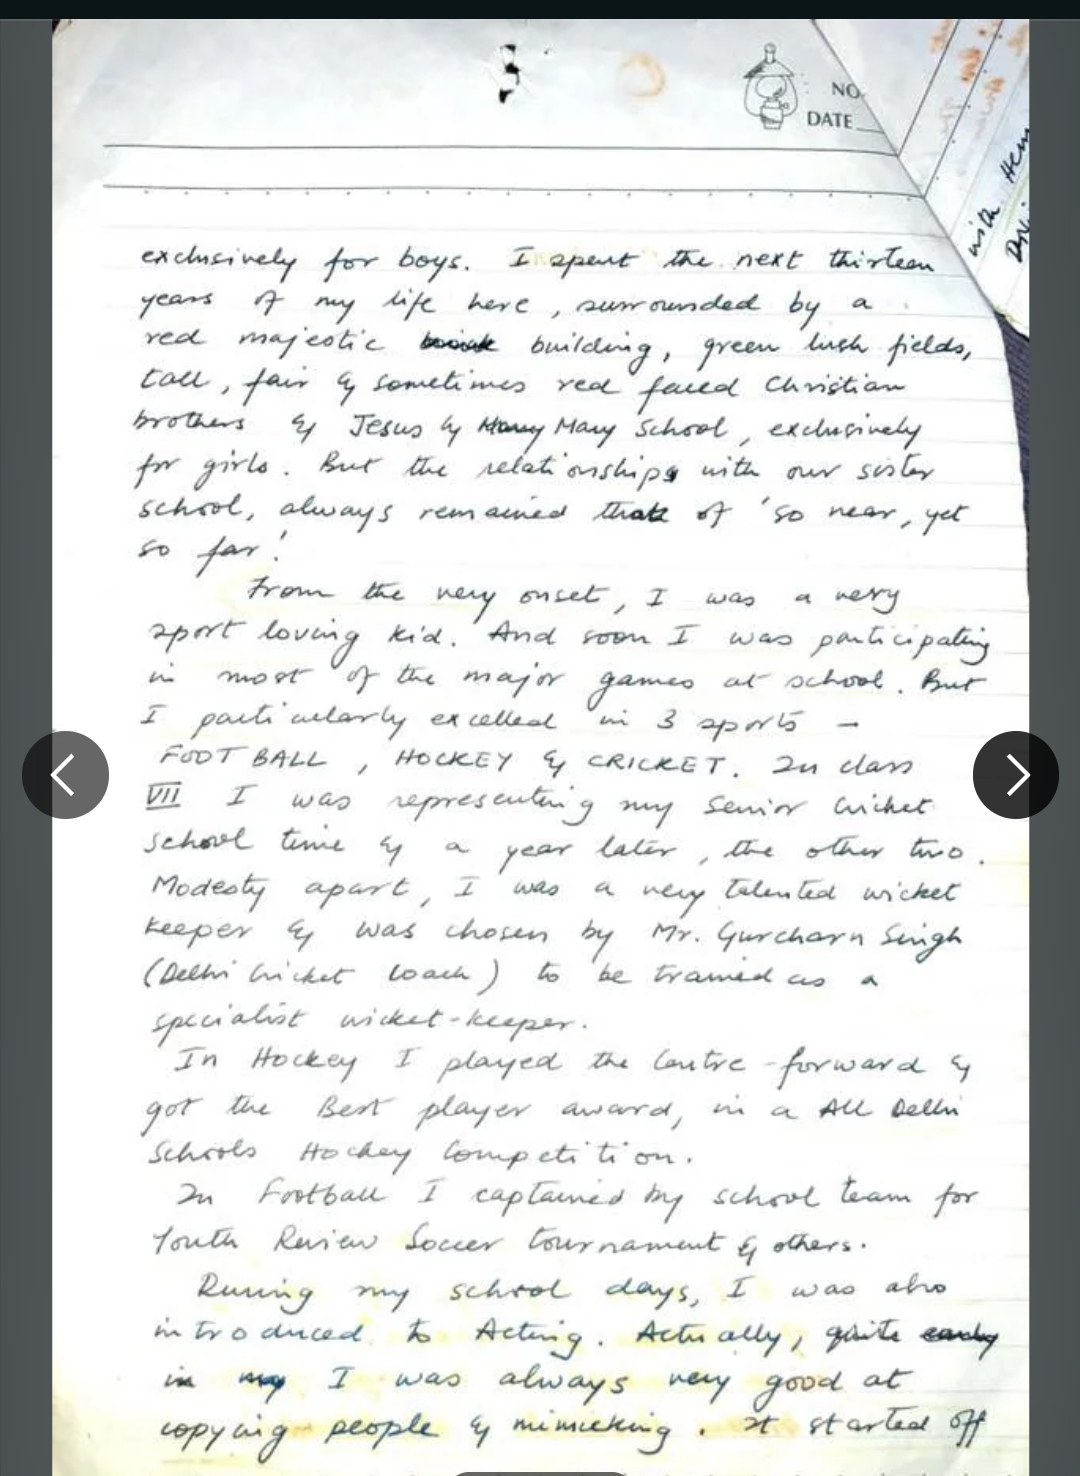 NO.
DATE
with Hem
exclusively for boys. I spent the next thirteen
years of my life here, surrounded by a
red majestic building, green lush fields,
tall, fair & sometimes red faced Christian
brothers & Jesus & Mary School, exclusively
for girls. But the relationships with our sister
school, always remained that of 'so near, yet
so far'.
From the very onset, I was a very
sport loving kid. And soon I was participating
in most of the major games at school. But
I particularly excelled in 3 sports –
FOOTBALL, HOCKEY & CRICKET. In class
VII I was representing my Senior Cricket
School time & a year later, the other two.
Modesty apart, I was a very talented wicket
keeper & was chosen by Mr. Gurcharn Singh
(Delhi Cricket Coach) to be trained as a
specialist wicket-keeper.
In Hockey I played the Centre-forward &
got the Best player award, in a All Delhi
Schools Hockey Competition.
In Football I captained my school team for
Youth Review Soccer tournament & others.
During my school days, I was also
introduced to Acting. Actually, quite early
in my I was always very good at
copying people & mimicking. It started off